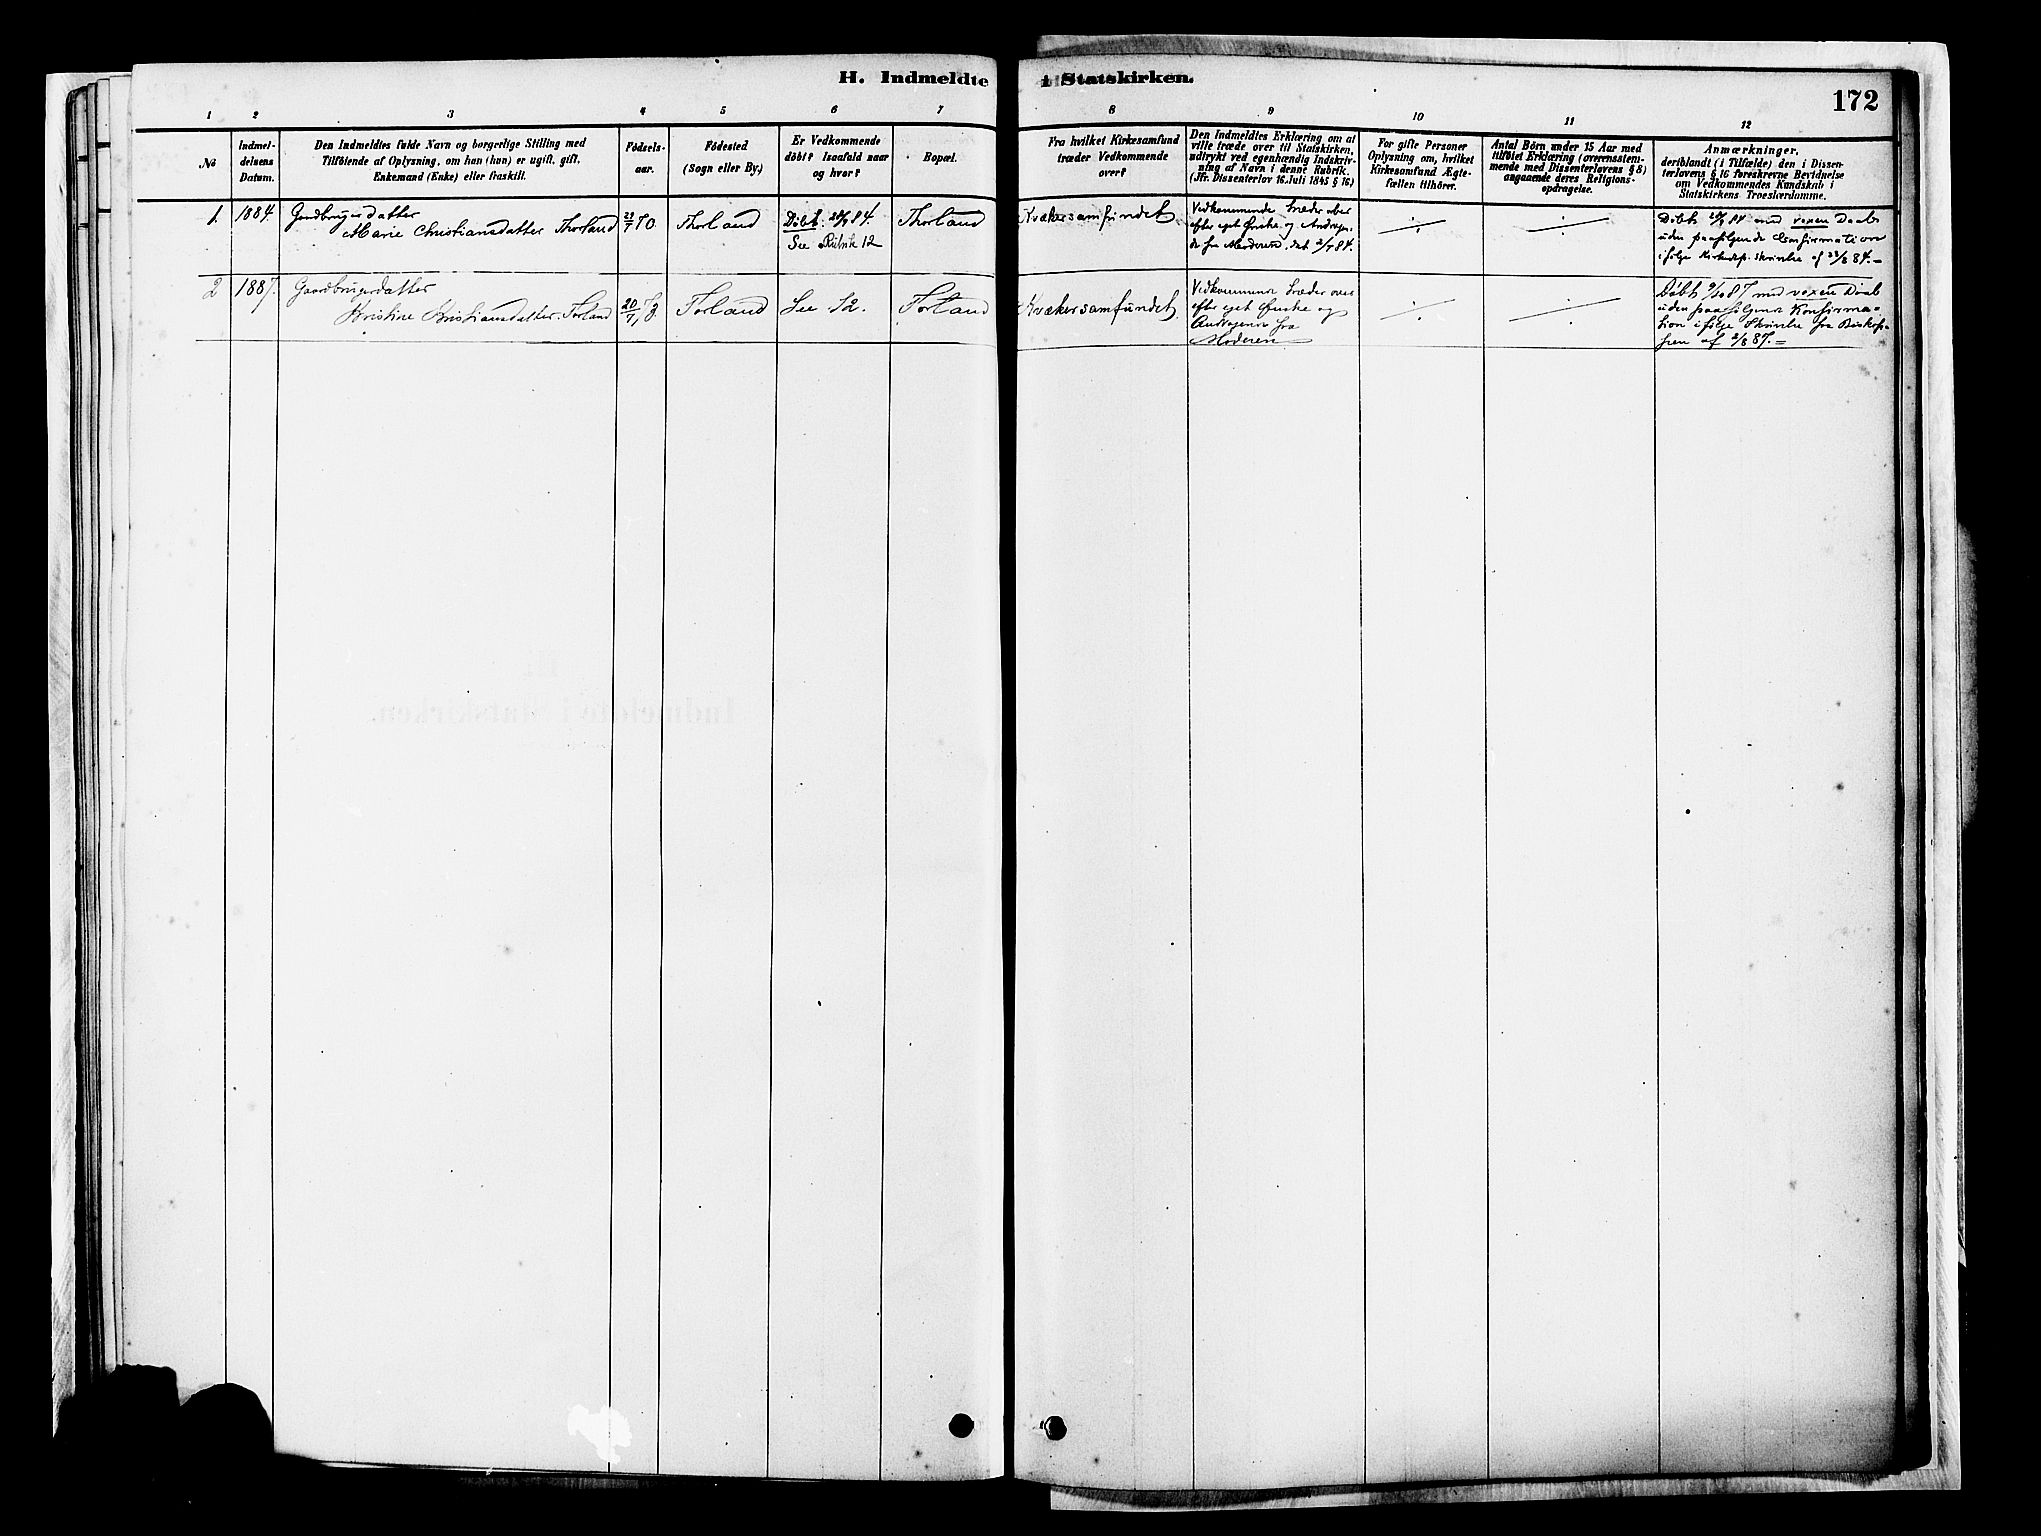 H. Indmeldte i Statskirken.
172
1 2 3 4 5 6 7 8 9 10 11 12
No
Indmel-
delsens
Datum.
Den Indmeldtes fulde Navn og borgerlige Stilling med
Tilföiende af Oplysning, om han (hun) er ugift, gift,
Enkemand (Enke) eller fraskilt.
Födsels-
aar.
Födested
(Sogn eller By.)
Er Vedkommende
döbt? Isaafald naar
og hvor?
Bopæl.
Fra hvilket Kirkesamfund
træder Vedkommende
over?
Den Indmeldtes Erklæring om at
ville træde over til Statskirken,
udtrykt ved egenhændig Indskriv-
ning af Navn i denne Rubrik.
(Jfr. Dissenterlov 16. Juli 1845 § 16)
For gifte Personer
Oplysning om, hvilket
Kirkesamfund Ægte-
fællen tilhörer.
Antal Börn under 15 Aar med
tilföiet Erklæring (overensstem-
mende med Dissenterlovens § 8)
angaaende deres Religions-
opdragelse.
Anmærkninger,
deriblandt (i Tilfælde) den i Dissen-
terlovens § 16 foreskrevne Bevidnelse
om Vedkommendes Kundskab i
Statskirkens Troeslærdomme.
1.
1884.
Gaardbrugerdatter
Marie Christiansdatter Thorland
70
Thorland
Döbt 84
See Rubrik 12
Thorland
Kvækersamfundet
Vedkommende træder over
efter eget Ønske og Andragen-
de fra Moderen, dat. 84.
Döbt 84 med voxen Daab
uden paafölgende Confirmation
ifölge Kirkedep. Skrivelse af 84.
2
1887.
Gaardbrugerdatter
Kristine Kristiansdatter Torland
20/7
Torland
See 12.
Torland
Kvækersamfundet
Vedkommende træder over
efter eget Ønske og
Andragende fra
Moderen
Döbt 87 med voxen Daab
uden paafölgende Konfirma-
tion ifölge Skrivelse fra Biskop-
pen af 2/8 87.